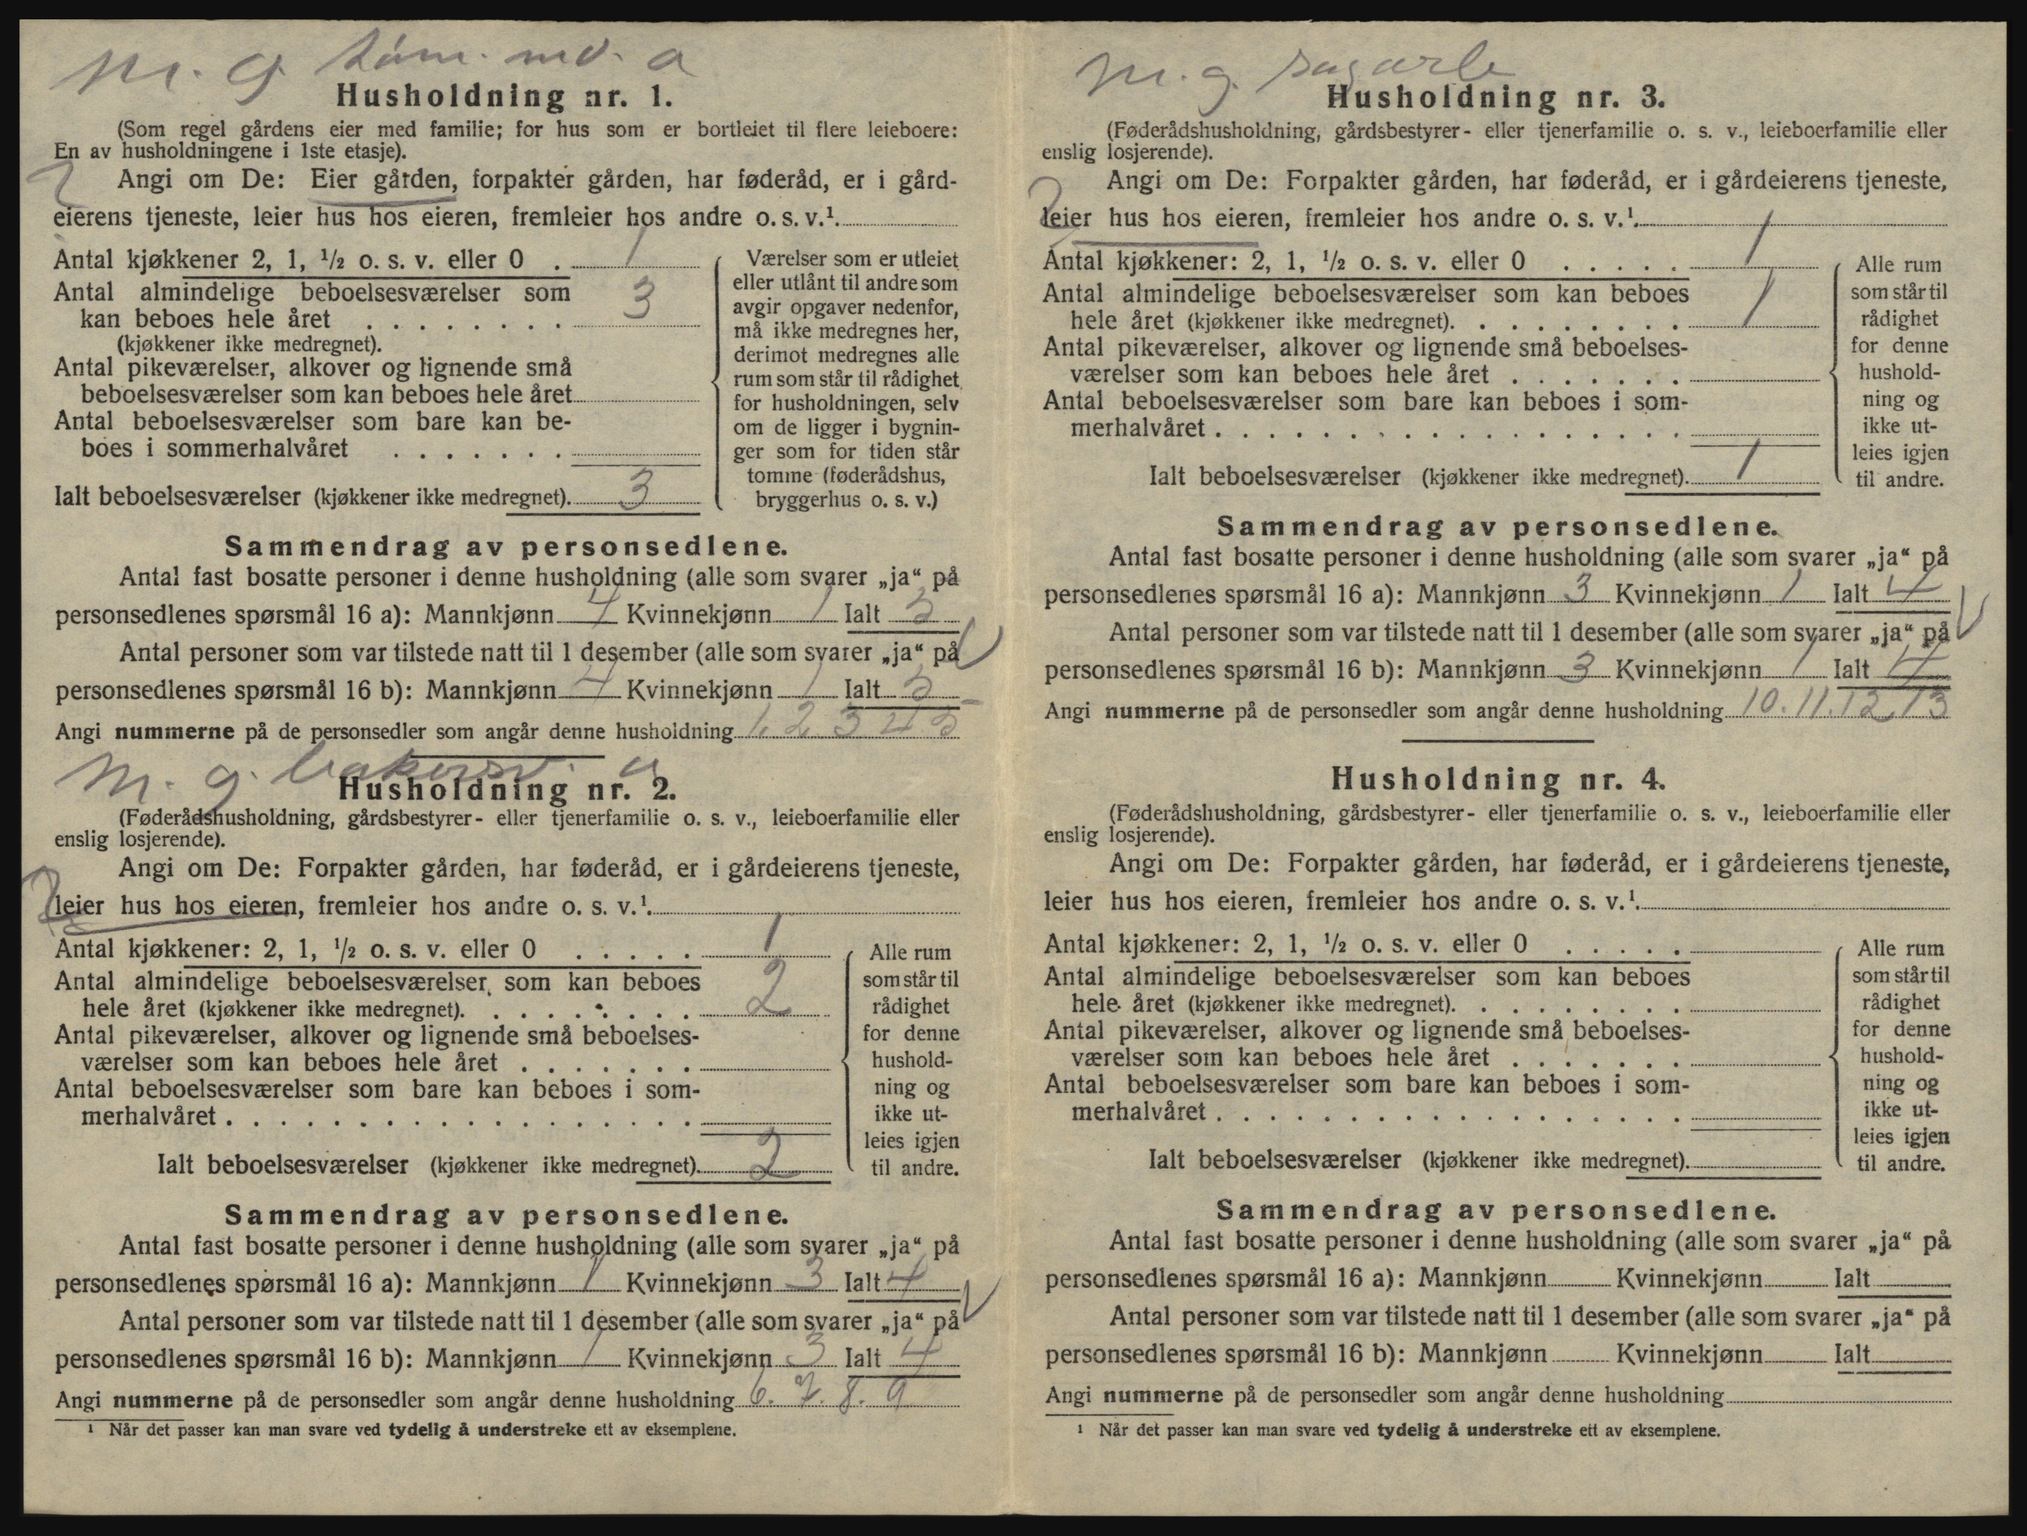 m. g. tøm. md. a
Husholdning nr. 1.
(Som regel gårdens eier med familie; for hus som er bortleiet til flere leieboere:
En av husholdningene i 1ste etasje).
Angi om De: Eier gården, forpakter gården, har føderåd, er i gård-
eierens tjeneste, leier hus hos eieren, fremleier hos andre o. s. v.¹
Antal kjøkkener 2, 1, ½ o. s. v. eller 0 . 1
Antal almindelige beboelsesværelser som
kan beboes hele året . . . . . . . . 3
(kjøkkener ikke medregnet).
Antal pikeværelser, alkover og lignende små
beboelsesværelser som kan beboes hele året
Antal beboelsesværelser som bare kan be-
boes i sommerhalvåret . . . . . . .
Ialt beboelsesværelser (kjøkkener ikke medregnet). 3
Værelser som er utleiet
eller utlånt til andre som
avgir opgaver nedenfor,
må ikke medregnes her,
derimot medregnes alle
rum som står til rådighet
for husholdningen, selv
om de ligger i bygnin-
ger som for tiden står
tomme (føderådshus,
bryggerhus o. s. v.)
Sammendrag av personsedlene.
Antal fast bosatte personer i denne husholdning (alle som svarer „ja“ på
personsedlenes spørsmål 16 a): Mannkjønn 4 Kvinnekjønn 1 Ialt 5
Antal personer som var tilstede natt til 1 desember (alle som svarer „ja“ på
personsedlenes spørsmål 16 b): Mannkjønn 4 Kvinnekjønn 1 Ialt 5
Angi nummerne på de personsedler som angår denne husholdning 1, 2 3 4 5
m. g. a
Husholdning nr. 2.
(Føderådshusholdning, gårdsbestyrer- eller tjenerfamilie o. s. v., leieboerfamilie eller
enslig losjerende).
Angi om De: Forpakter gården, har føderåd, er i gårdeierens tjeneste,
leier hus hos eieren, fremleier hos andre o. s. v.¹
Antal kjøkkener: 2, 1, ½ o. s. v. eller 0 . . . . . 1
Antal almindelige beboelsesværelser som kan beboes
hele året (kjøkkener ikke medregnet). . . . . . . . . 2
Antal pikeværelser, alkover og lignende små beboelses-
værelser som kan beboes hele året . . . . . . .
Antal beboelsesværelser som bare kan beboes i som-
merhalvåret . . . . . . . . . . . . . . . . . .
Ialt beboelsesværelser (kjøkkener ikke medregnet). 2
Alle rum
som står til
rådighet
for denne
hushold-
ning og
ikke ut-
leies igjen
til andre.
Sammendrag av personsedlene.
Antal fast bosatte personer i denne husholdning (alle som svarer „ja“ på
personsedlenes spørsmål 16 a): Mannkjønn 1 Kvinnekjønn 3 Ialt 4
Antal personer som var tilstede natt til 1 desember (alle som svarer „ja“ på
personsedlenes spørsmål 16 b): Mannkjønn 1 Kvinnekjønn 3 Ialt 4
Angi nummerne på de personsedler som angår denne husholdning 6. 7. 8. 9
¹ Når det passer kan man svare ved tydelig å understreke ett av eksemplene.
m. g. sagarb
Husholdning nr. 3.
(Føderådshusholdning, gårdsbestyrer- eller tjenerfamilie o. s. v., leieboerfamilie eller
enslig losjerende).
Angi om De: Forpakter gården, har føderåd, er i gårdeierens tjeneste,
leier hus hos eieren, fremleier hos andre o. s. v.¹
Antal kjøkkener: 2, 1, ½ o. s. v. eller 0 . . . . . 1
Antal almindelige beboelsesværelser som kan beboes
hele året (kjøkkener ikke medregnet). . . . . . . . . 1
Antal pikeværelser, alkover og lignende små beboelses-
værelser som kan beboes hele året . . . . . . .
Antal beboelsesværelser som bare kan beboes i som-
merhalvåret . . . . . . . . . . . . . . . . . .
Ialt beboelsesværelser (kjøkkener ikke medregnet). 1
Alle rum
som står til
rådighet
for denne
hushold-
ning og
ikke ut-
leies igjen
til andre.
Sammendrag av personsedlene.
Antal fast bosatte personer i denne husholdning (alle som svarer „ja“ på
personsedlenes spørsmål 16 a): Mannkjønn 3 Kvinnekjønn 1 Ialt 4
Antal personer som var tilstede natt til 1 desember (alle som svarer „ja“ på
personsedlenes spørsmål 16 b): Mannkjønn 3 Kvinnekjønn 1 Ialt 4
Angi nummerne på de personsedler som angår denne husholdning 10. 11. 12. 13
Husholdning nr. 4.
(Føderådshusholdning, gårdsbestyrer- eller tjenerfamilie o. s. v., leieboerfamilie eller
enslig losjerende).
Angi om De: Forpakter gården, har føderåd, er i gårdeierens tjeneste,
leier hus hos eieren, fremleier hos andre o. s. v.¹
Antal kjøkkener: 2, 1, ½ o. s. v. eller 0 . . . . .
Antal almindelige beboelsesværelser som kan beboes
hele året (kjøkkener ikke medregnet). . . . . . . . .
Antal pikeværelser, alkover og lignende små beboelses-
værelser som kan beboes hele året . . . . . . .
Antal beboelsesværelser som bare kan beboes i som-
merhalvåret . . . . . . . . . . . . . . . . . .
Ialt beboelsesværelser (kjøkkener ikke medregnet).
Alle rum
som står til
rådighet
for denne
hushold-
ning og
ikke ut-
leies igjen
til andre.
Sammendrag av personsedlene.
Antal fast bosatte personer i denne husholdning (alle som svarer „ja“ på
personsedlenes spørsmål 16 a): Mannkjønn Kvinnekjønn Ialt
Antal personer som var tilstede natt til 1 desember (alle som svarer „ja“ på
personsedlenes spørsmål 16 b): Mannkjønn Kvinnekjønn Ialt
Angi nummerne på de personsedler som angår denne husholdning
¹ Når det passer kan man svare ved tydelig å understreke ett av eksemplene.